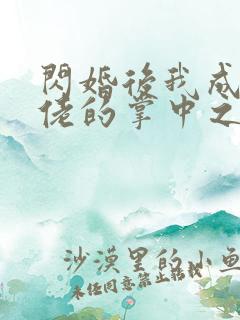 閃婚後我成
佬的掌中之
沙漠里的小魚
未经同意禁止转载